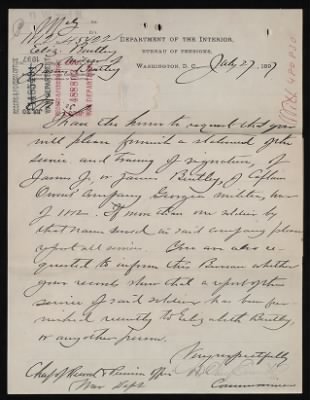 DEPARTMENT OF THE INTERIOR,
BUREAU OF PENSIONS,
WASHINGTON, D. C., July 27, 1897
Widow of
Bentley
I have the honor to request that you
will please furnish a statement of the
service and tracing of signature, of
James J. or James Bentley, of Captain
Owens' Company, Georgia militia, war
of 1812. If more than one soldier by
that name served in said company please
report all service. You are also re-
quested to inform this Bureau whether
your records show that a report of the
service of said soldier has been fur-
nished recently to Elizabeth Bentley,
or any other person.
Very respectfully
Chief of Record & Pension Office
War Dept.
Commissioner